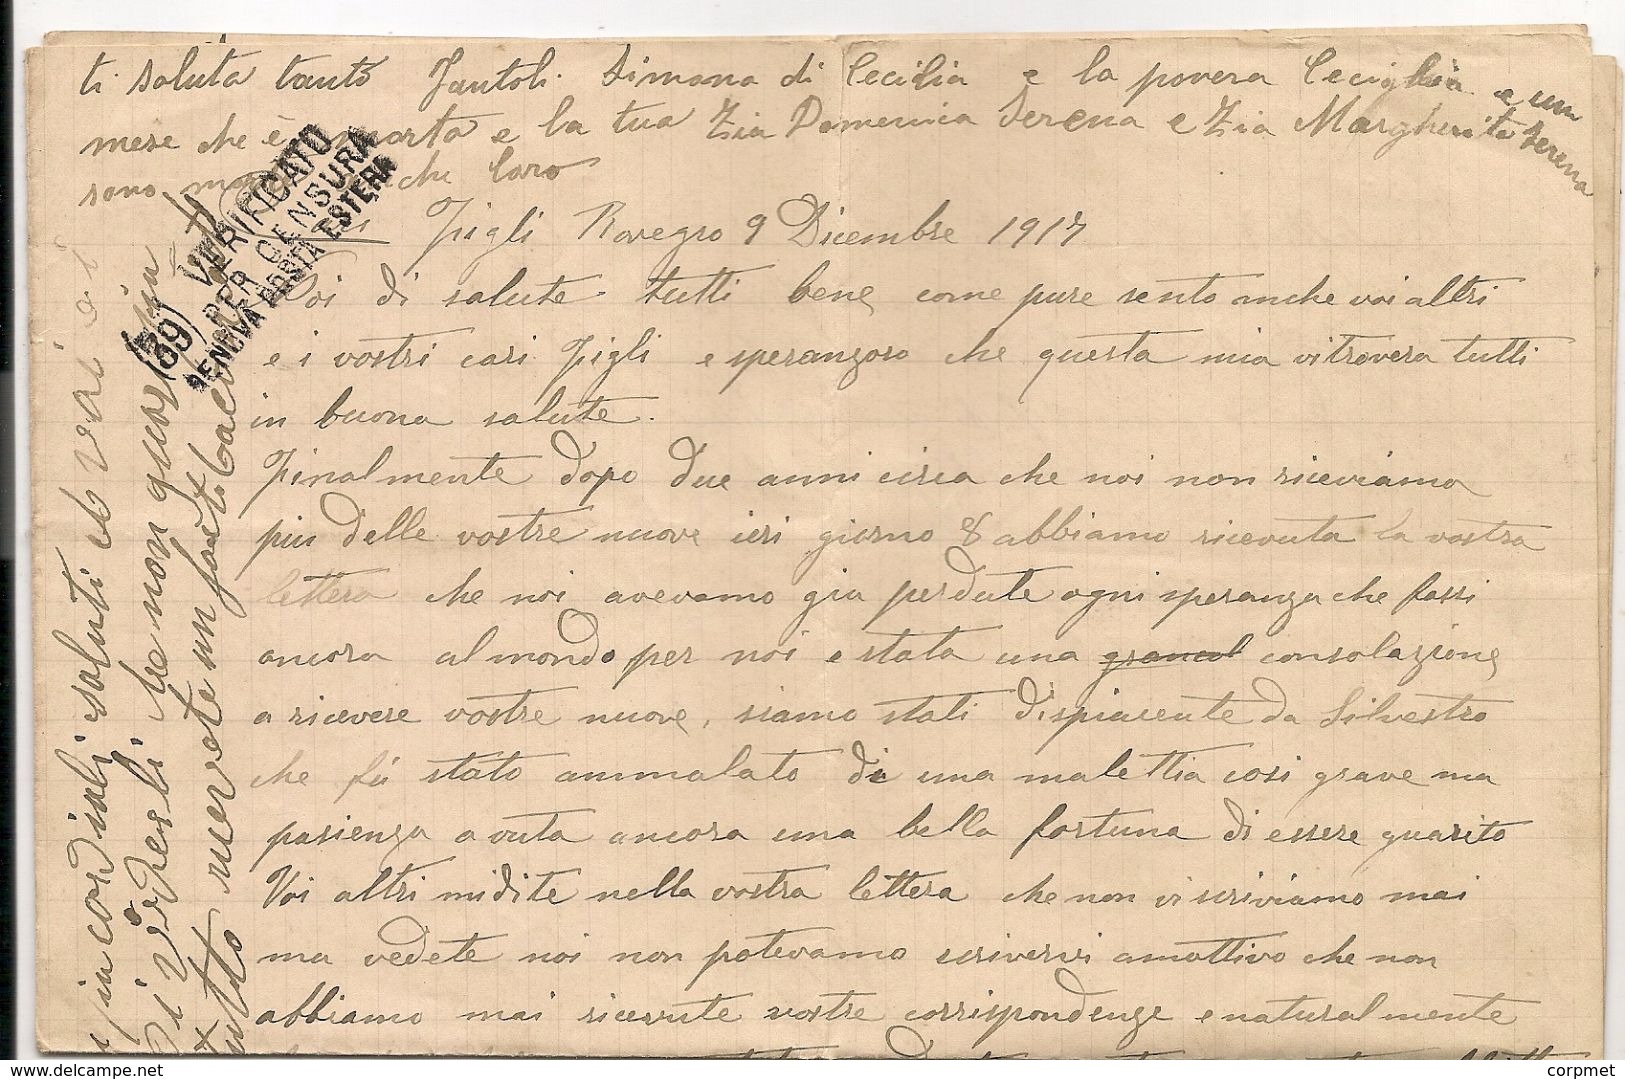 ti saluta tanto Fantoli Simona di Cecilia e la povera Ceciglia e un
mese che è morta e la tua Zia Domenica Serena e Zia Margherita Serena
sono anche loro
Figli Rovegro 9 Dicembre 1917
VERIFICATO
PER CENSURA
GENOVA POSTA ESTERA
(89)
Noi di salute tutti bene come pure sento anche voi altri
e i vostri cari Figli e speranzoso che questa mia vitrovera tutti
in buona salute.
Finalmente dopo due anni circa che noi non riceviamo
piu delle vostre nuove ieri giorno 8 abbiamo ricevuta la vostra
lettera che noi avevamo gia perdute ogni speranza che fossi
ancora al mondo per noi e stata una consolazione
a ricevere vostre nuove, siamo stati dispiacente da Silvestro
che fú stato ammalato di una malettia cosi grave ma
pasienza avuta ancora una bella fortuna di essere guarito
Voi altri midite nella vostra lettera che non vi scriviamo mai
ma vedete noi non potevamo scrivervi amottivo che non
abbiamo mai ricevute vostre corrispondenze e naturalmente
cordiali saluti et
non
un forte